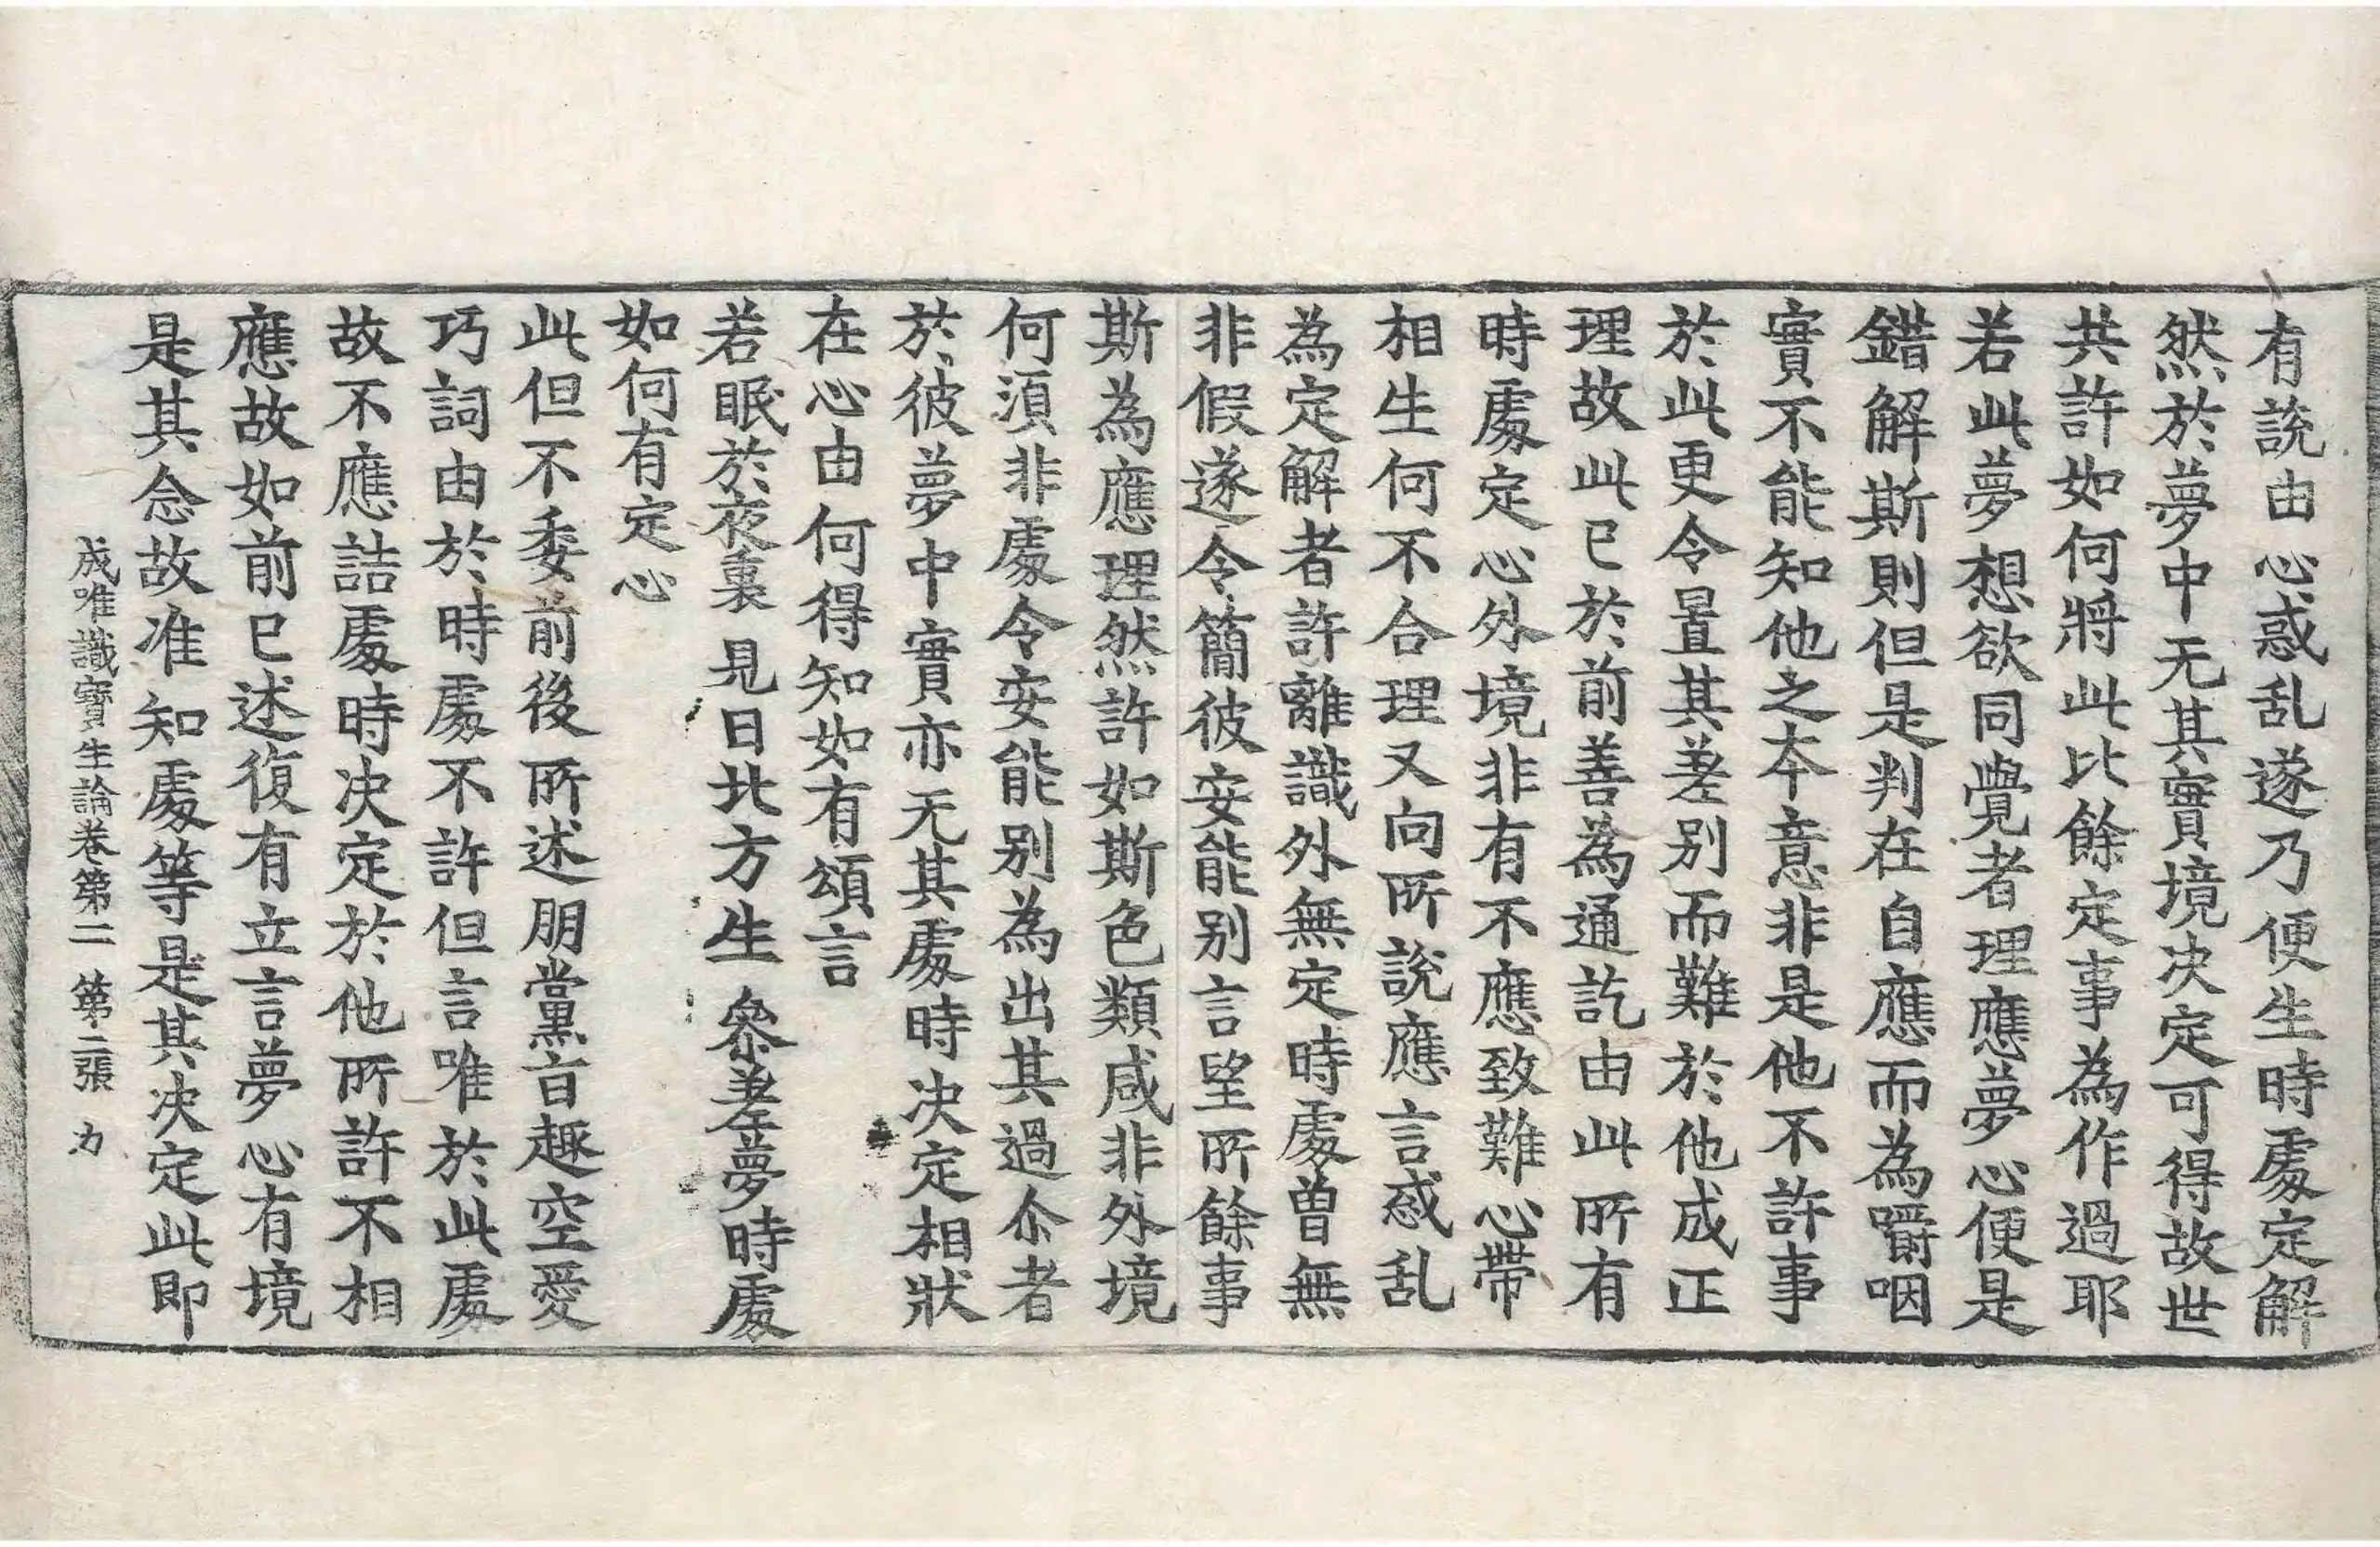 有說由心惑乱遂乃便生時處定解
然於夢中无其實境決定可得故世
共許如何將此比餘定事為作過耶
若此夢想欲同覺者理應夢心便是
錯解斯則但是判在自應而為嚼咽
實不能知他之本意非是他不許事
於此更令置其差別而難於他成正
理故此已於前善為通訖由此所有
時處定心外境非有不應致難心帶
相生何不合理又向所說應言惑乱
為定解者許離識外無定時處曾無
非假遂令簡彼安能別言望所餘事
斯為應理然許如斯色類咸非外境
何須非處令安能別為出其過尒者
於彼夢中實亦无其處時決定相狀
在心由何得知如有頌言
若眠於夜裏 見日北方生 參差夢時處
如何有定心
此但不委前後所述朋黨盲趣空愛
巧詞由於時處不許但言唯於此處
故不應詰處時決定於他所許不相
應故如前已述復有立言夢心有境
是其念故准知處等是其決定此即
成唯識寶生論卷第二 第二張 力